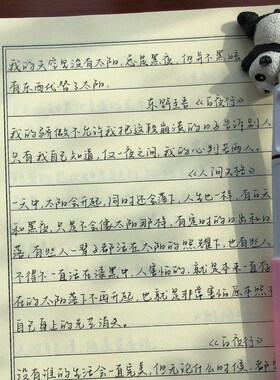 我的天空里没有太阳,总是黑夜,但并不黑暗
有东西代替了太阳.
东野圭吾《白夜行》
我的骄傲不允许我把这段崩溃的日子告诉别人
只有我自己知道,仅一夜之间,我的心判若两人。
《人间失格》
一天中太阳会升起,同时还会落下,人生也一样,有白天
和黑夜,只是不会像太阳那样,有定时的日出和日
落,有些人一辈子都活在太阳的照耀下,也有些人
不得不一直活在漆黑中,人害怕的,就是本来一直存
在的太阳落下不再升起,也就是非常害怕原来照在
自己身上的光芒消失。
《白夜行》
没有谁的生活会一直完美,但无论什么时候,都